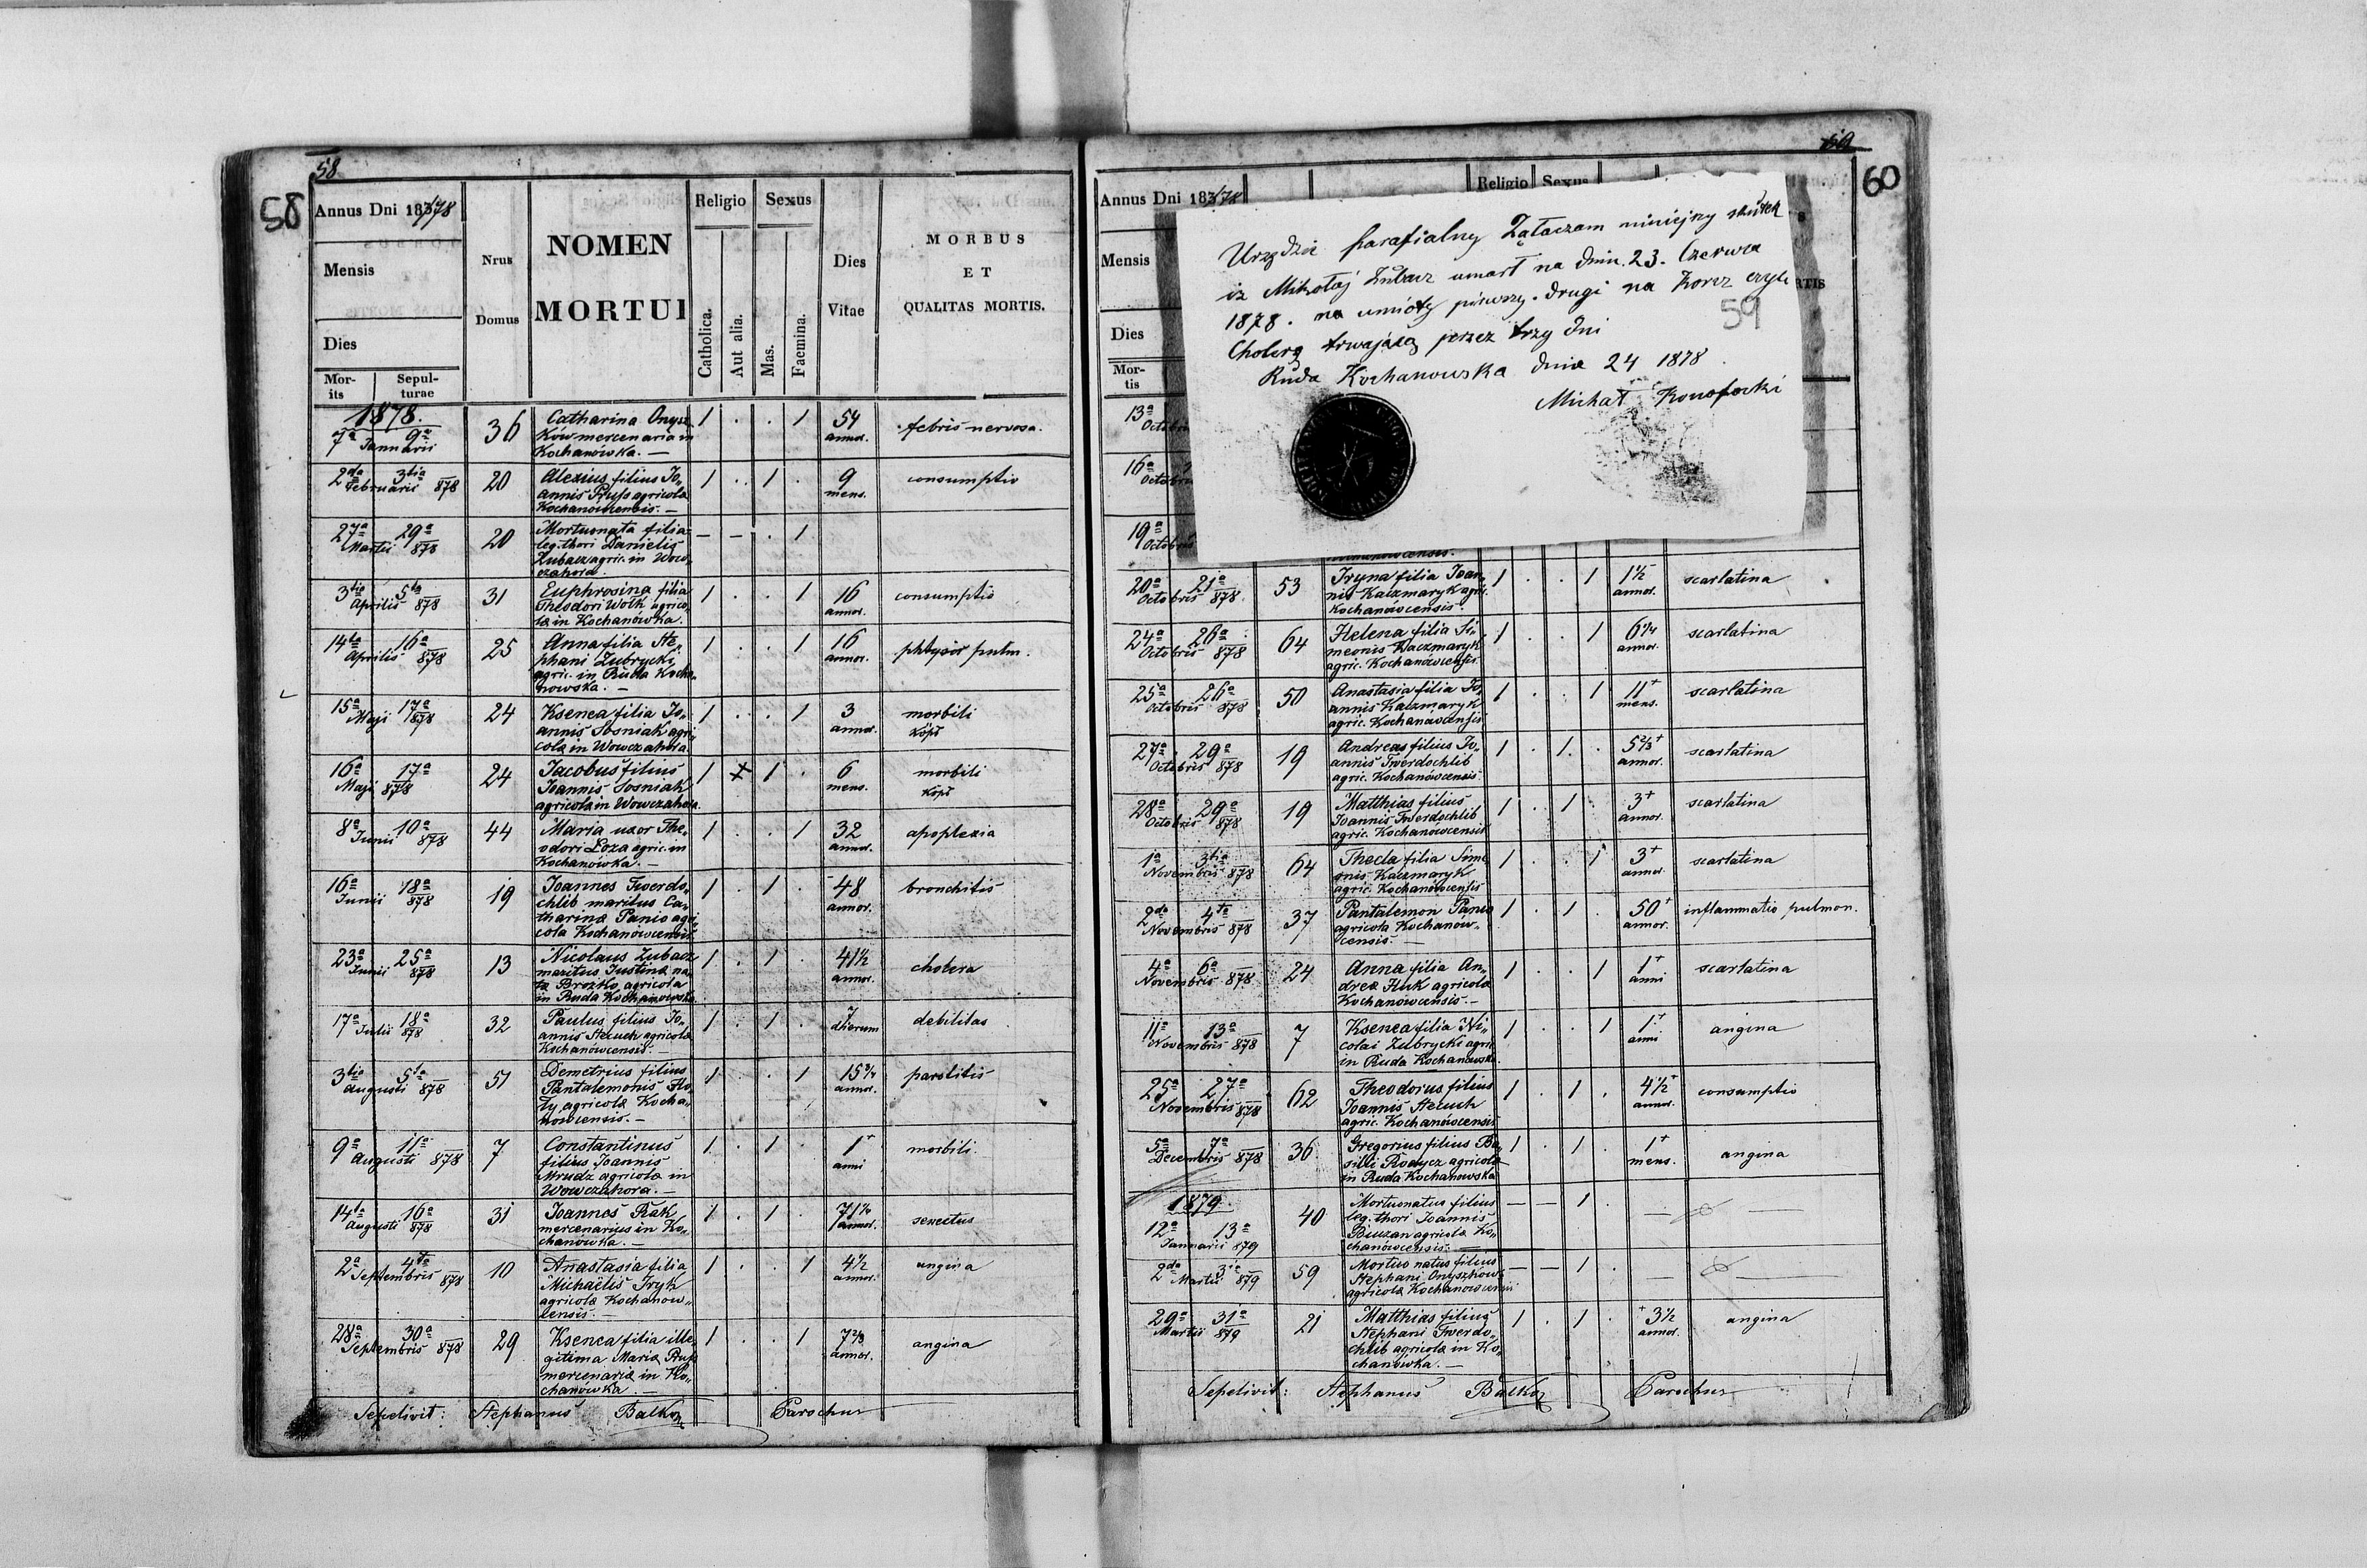 58
58
Annus Dni 1878
Mensis
Dies
Mor-
its
Sepul-
turae
Nrus
Domus
NOMEN
MORTUI
Religio
Catholica.
Aut alia.
Sexus
Mas.
Faemina.
Dies
Vitae
MORBUS
ET
QUALITAS MORTIS.
1878.
7a 9a
Januarii
36
Catharina Onysz
ków mercenaria in
Kochanowka. —
1 . . 1
54
annor.
febris nervosa.
2da 3tia
Februarii 878
20
Alexius filius Jo„
annis Pruss agricola
Kochanowcensis. —
1 . 1 .
9
mens.
consumptio
27a 29a
Martii 878
20
Mortuonata filia
leg. thori Danielis
Zubacz agric. in Wow„
czahora.
— — . 1
3tia 5ta
Aprilis 878
31
Euphrosina filia
Theodori Wolk agrico„
la in Kochanówka.
1 . . 1
16
annor.
consumptio
14ta 16a
Aprilis 878
25
Anna filia Ste„
phani Zubrycki
agric. in Ruda Kocha„
nowska. —
1 . . 1
16
annor.
phtysis pulm.
15a 17a
Maji 878
24
Ksenca filia Jo„
annis Sosniak agri„
cola in Wowczahora.
1 . . 1
3
annor.
morbili
16a 17a
Maji 878
24
Jacobus filius
Joannis Sosniak
agricola in Wowczahora.
1 1 .
6
mens.
morbili
8a 10a
Junii 878
44
Maria uxor The„
odori Loza agric. in
Kochanówka. —
1 . . 1
32
annor.
apoplexia
16a 18a
Junii 878
19
Joannes Twerdo„
chlib maritus Ca„
tharina Panio agri
cola Kochanówcensis
1 . 1 .
48
annor.
bronchitis
23a 25a
Junii 878
13
Nicolaus Zubacz
maritus Justina na„
ta Brozko agricola
in Ruda Kochanowska
1 . 1 .
41½
annor.
cholera
17a 18a
Julii 878
32
Paulus filius Jo„
annis Stecuch agricola
Kochanówcensis. —
1 . 1 .
7
dierum
debilitas
3tia 5ta
Augusti 878
51
Demetrius filius
Pantalemonis
agricola Kocha„
nowcensis. —
1 . . 1
15¾
annor.
parotitis
9a 11a
Augusti 878
7
Constantinus
filius Joannis
Mrudz agricola in
Wowczahora. —
1 . 1 .
1+
anni
morbili.
14ta 16a
Augusti 878
31
Joannes Rak
mercenarius in Ko„
chanówka. —
1 . 1 .
annor.
senectus
2a 4ta
Septembris 878
10
Anastasia filia
Michaëlis Iryk
agricola Kochanow„
censis. —
1 . . 1
4½
annor.
angina
28a 30a
Septembris 878
29
Ksenca filia ille„
gitima Maria Pruss
mercenaria in Ko„
chanówka. —
1 . . 1
7⅔
annor.
angina
Sepelivit: Stephanus Balko Parochus
60
Annus Dni 1878
Mensis
Dies
Mor-
tis
Religio Sexus
Urzędzie parafialny Załaczam niniejszy skutek
iz Mikołaj Zubacz umarł na dniu 23. Czerwca
1878. na umióty pierwszy. drugi na Korcz czyli
Cholerą trwającą przez trzy dni
59
Ruda Kochanowska dnia 24 1878.
Michał Konopocki
13a
Octobris
16a
Octobris
19a
Octobris
20a 21a
Octobris 878
53
Iryna filia Joan„
nis Kaczmaryk agric.
Kochanówcensis.
1 . . 1
1½
annor.
scarlatina
24a 26a
Octobris 878
64
Helena filia Si„
meonis Kaczmaryk
agric. Kochanówcensis.
1 . . 1
6¼
annor.
scarlatina
25a 26a
Octobris 878
50
Anastasia filia Jo„
annis Kaczmaryk
agric. Kochanówcensis
1 . . 1
11+
mens.
scarlatina
27a 29a
Octobris 878
19
Andreas filius Jo„
annis Twerdochlib
agric. Kochanówcensis
1 . 1 .
5⅔+
annor.
scarlatina
28a 29a
Octobris 878
19
Matthias filius
Joannis Twerdochlib
agric. Kochanowcensis
1 . 1 .
3+
annor.
scarlatina
1a 3tia
Novembris 878
64
Thecla filia Sime„
onis Kaczmaryk
agric. Kochanówcensis
1 . . 1
3+
annor.
scarlatina
2da 4ta
Novembris 878
37
Pantalemon Panio
agricola Kochanów„
censis. —
1 . 1 .
50+
annor.
inflammatio pulmon.
4a 6a
Novembris 878
24
Anna filia An„
drea Huk agricola
Kochanowcensis. —
1 . . 1
1+
anni
scarlatina
11a 13a
Novembris 878
7
Ksenca filia Ni„
colai Zubrycki agric.
in Ruda Kochanowska.
1 . . 1
1+
anni
angina
25a 27a
Novembris 878
62
Theodorus filius
Joannis Stecuch
agric. Kochanówcensis
1 . 1 .
4½+
annor.
consumptio
5a 7a
Decembris 878
36
Gregorius filius Ba„
silii Rodycz agricola
in Ruda Kochanowska
1 . 1 .
1+
mens.
angina
1879.
12a 13a
Januarii 879
40
Mortuonatus filius
leg. thori Joannis
agricola Ko„
chanówcensis. —
— — 1 .
2da 3a
Martii 879
59
Mortuo natus filius
Stephani Onyszkow
agricola Kochanowcensis
— — 1 .
29a 31a
Martii 879
21
Matthias filius
Stephani Twerdo„
chlib agricola in Ko„
chanówka. —
1 . 1 .
+3½
annor.
angina
Sepelivit: Stephanus Balko Parochus